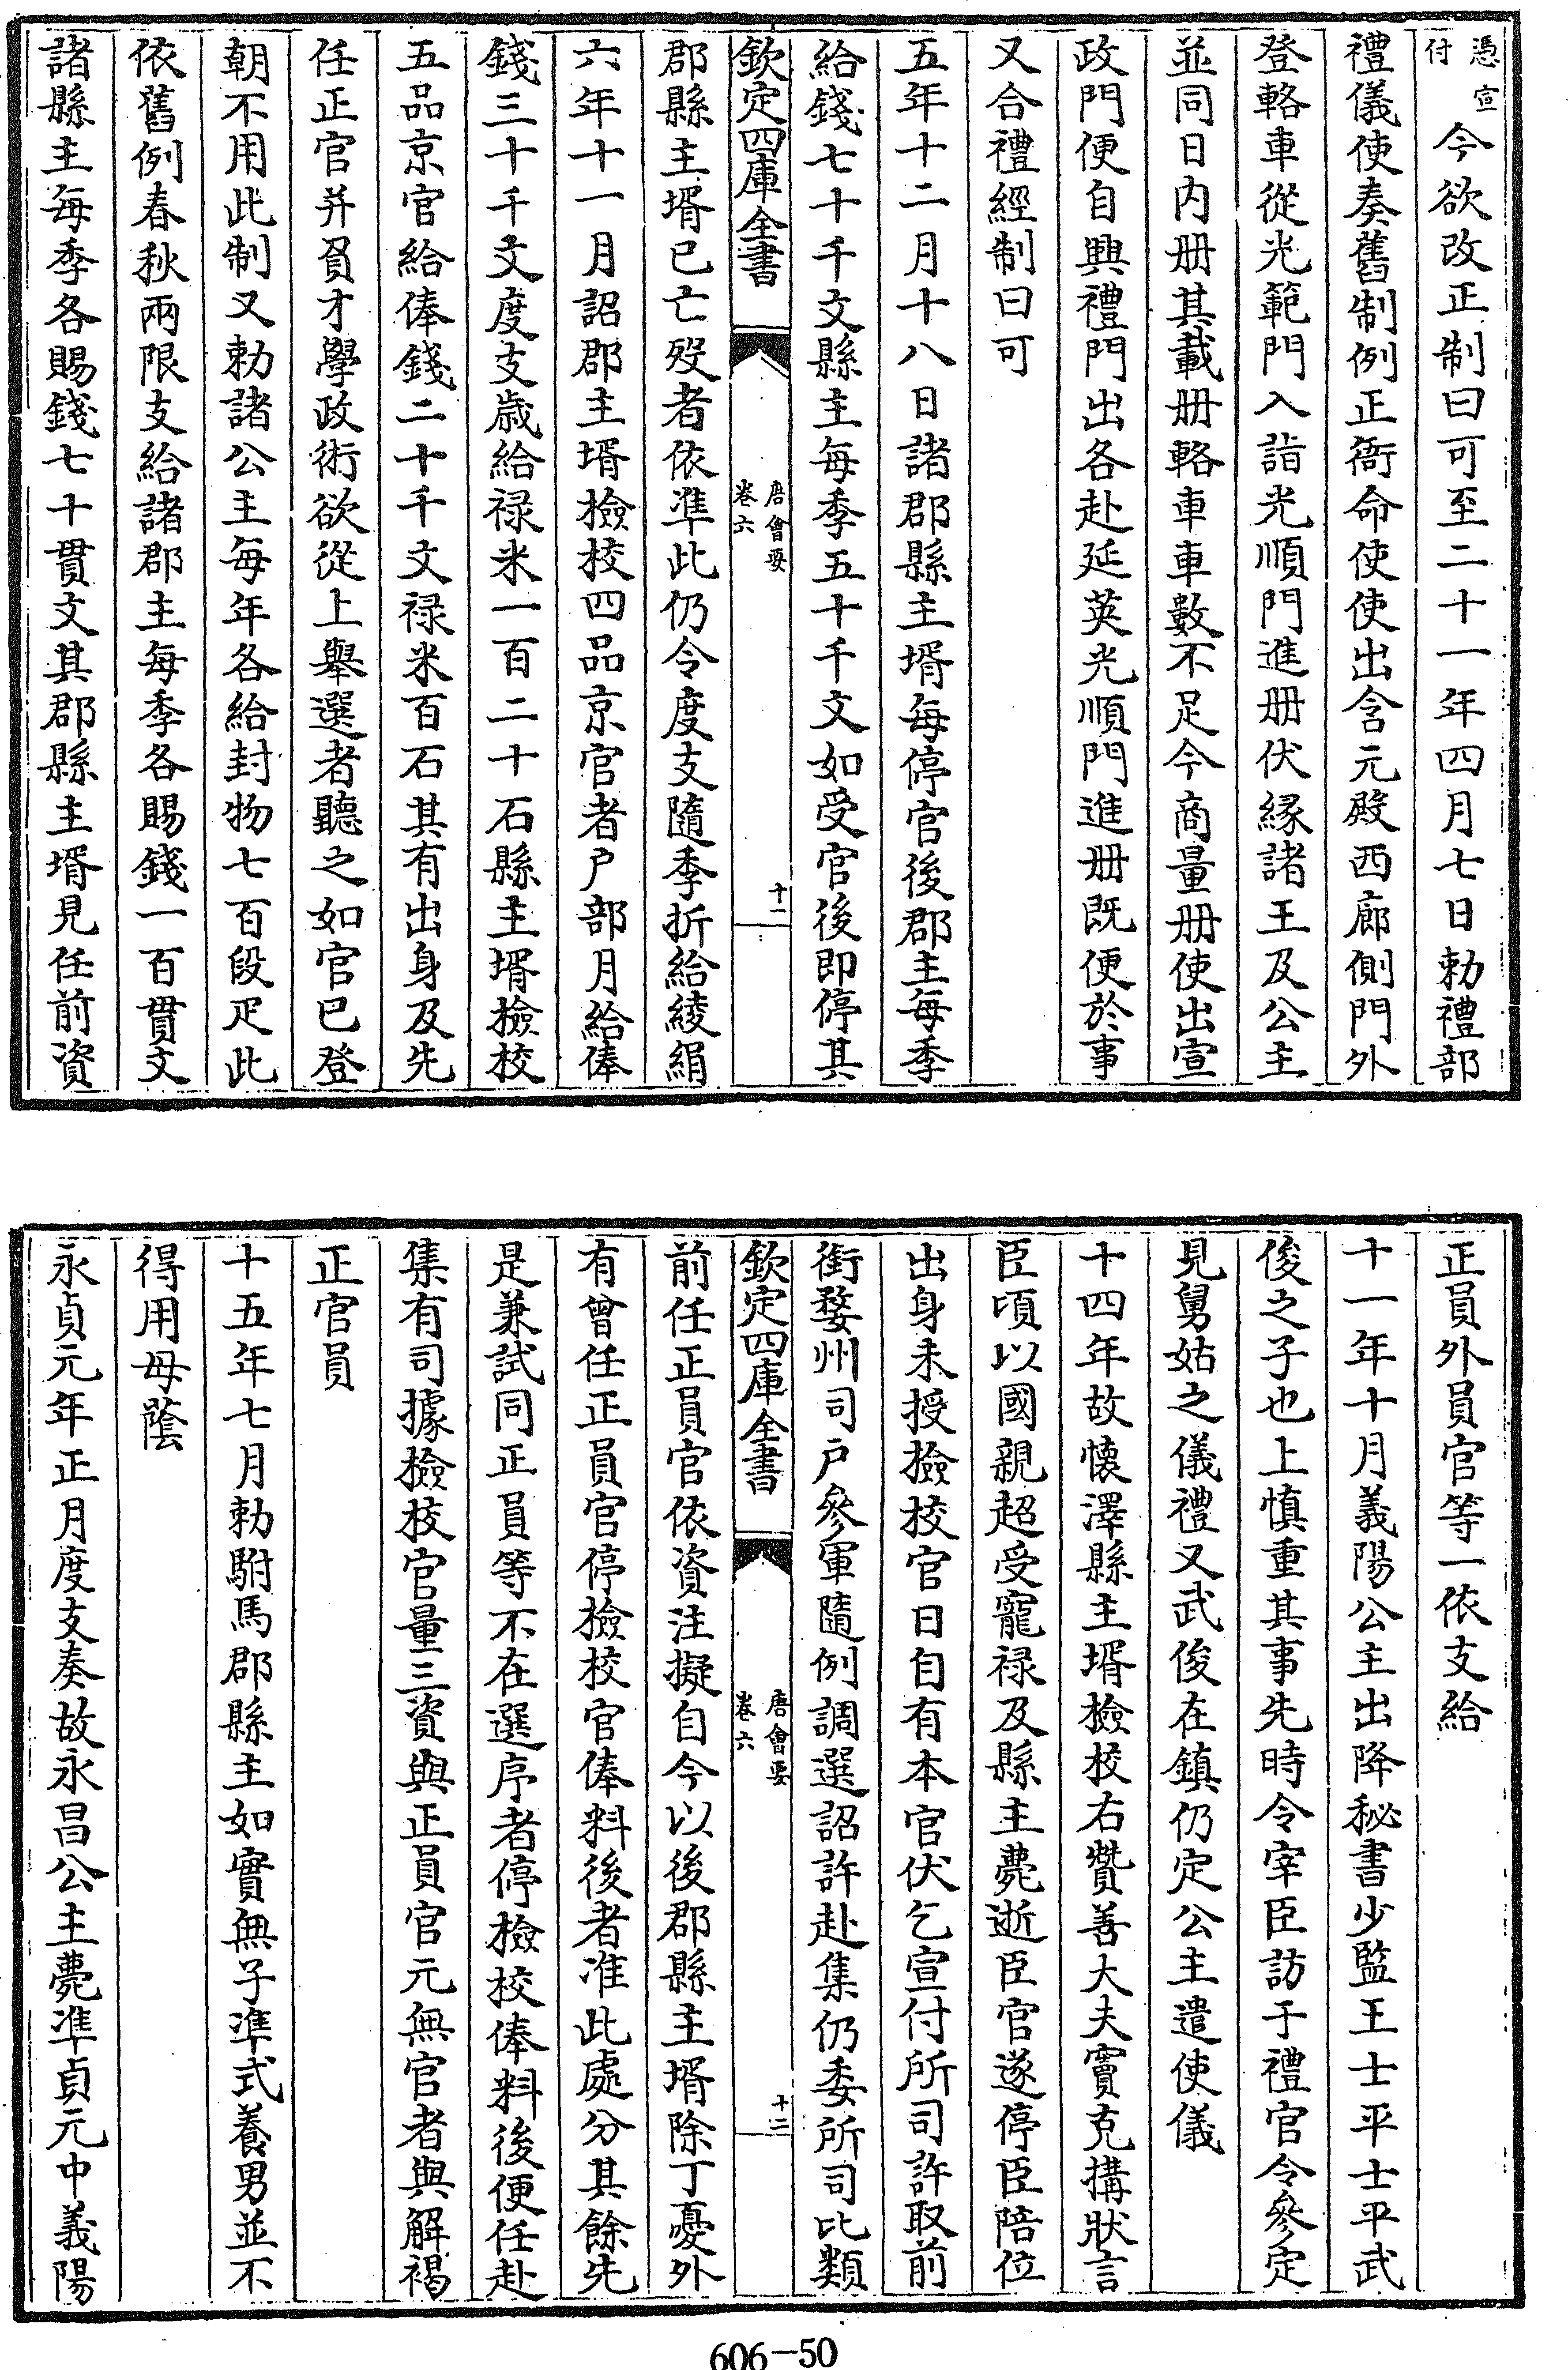 憑宣付今欲改正制曰可至二十一年四月七日勅禮部
禮儀使奏舊制例正衙命使使出含元殿西廊側門外
登輅車從光範門入詣光順門進册伏緣諸王及公主
並同日内册其載册輅車車數不足今商量册使出宣
政門便自興禮門出各赴延英光順門進册既便於事
又合禮經制曰可
五年十二月十八日諸郡縣主壻每停官後郡主每季
給錢七十千文縣主每季五十千文如受官後即停其
欽定四庫全書
唐會要
卷六
十二
郡縣主壻已亡殁者依準此仍令度支隨季折給綾絹
六年十一月詔郡主壻檢校四品京官者户部月給俸
錢三十千文度支歲給禄米一百二十石縣主壻檢校
五品京官給俸錢二十千文禄米百石其有出身及先
任正官并負才學政術欲從上舉選者聽之如官已登
朝不用此制又勅諸公主每年各給封物七百段疋此
依舊例春秋兩限支給諸郡主每季各賜錢一百貫文
諸縣主每季各賜錢七十貫文其郡縣主壻見任前資
正員外員官等一依支給
十一年十月義陽公主出降秘書少監王士平士平武
俊之子也上慎重其事先時令宰臣訪于禮官令參定
見舅姑之儀禮又武俊在鎮仍定公主遣使儀
十四年故懷澤縣主壻檢校右贊善大夫竇克搆狀言
臣頃以國親超受寵禄及縣主薨逝臣官遂停臣陪位
出身未授檢校官日自有本官伏乞宣付所司許取前
銜婺州司户參軍隨例調選詔許赴集仍委所司比類
欽定四庫全書
唐會要
卷六
十二
前任正員官依資注擬自今以後郡縣主壻除丁憂外
有曾任正員官停檢校官俸料後者准此處分其餘先
是兼試同正員等不在選序者停檢校俸料後便任赴
集有司據檢校官量三資與正員官元無官者與解褐
正官員
十五年七月勅駙馬郡縣主如實無子準式養男並不
得用母蔭
永貞元年正月度支奏故永昌公主薨準貞元中義陽
606-50